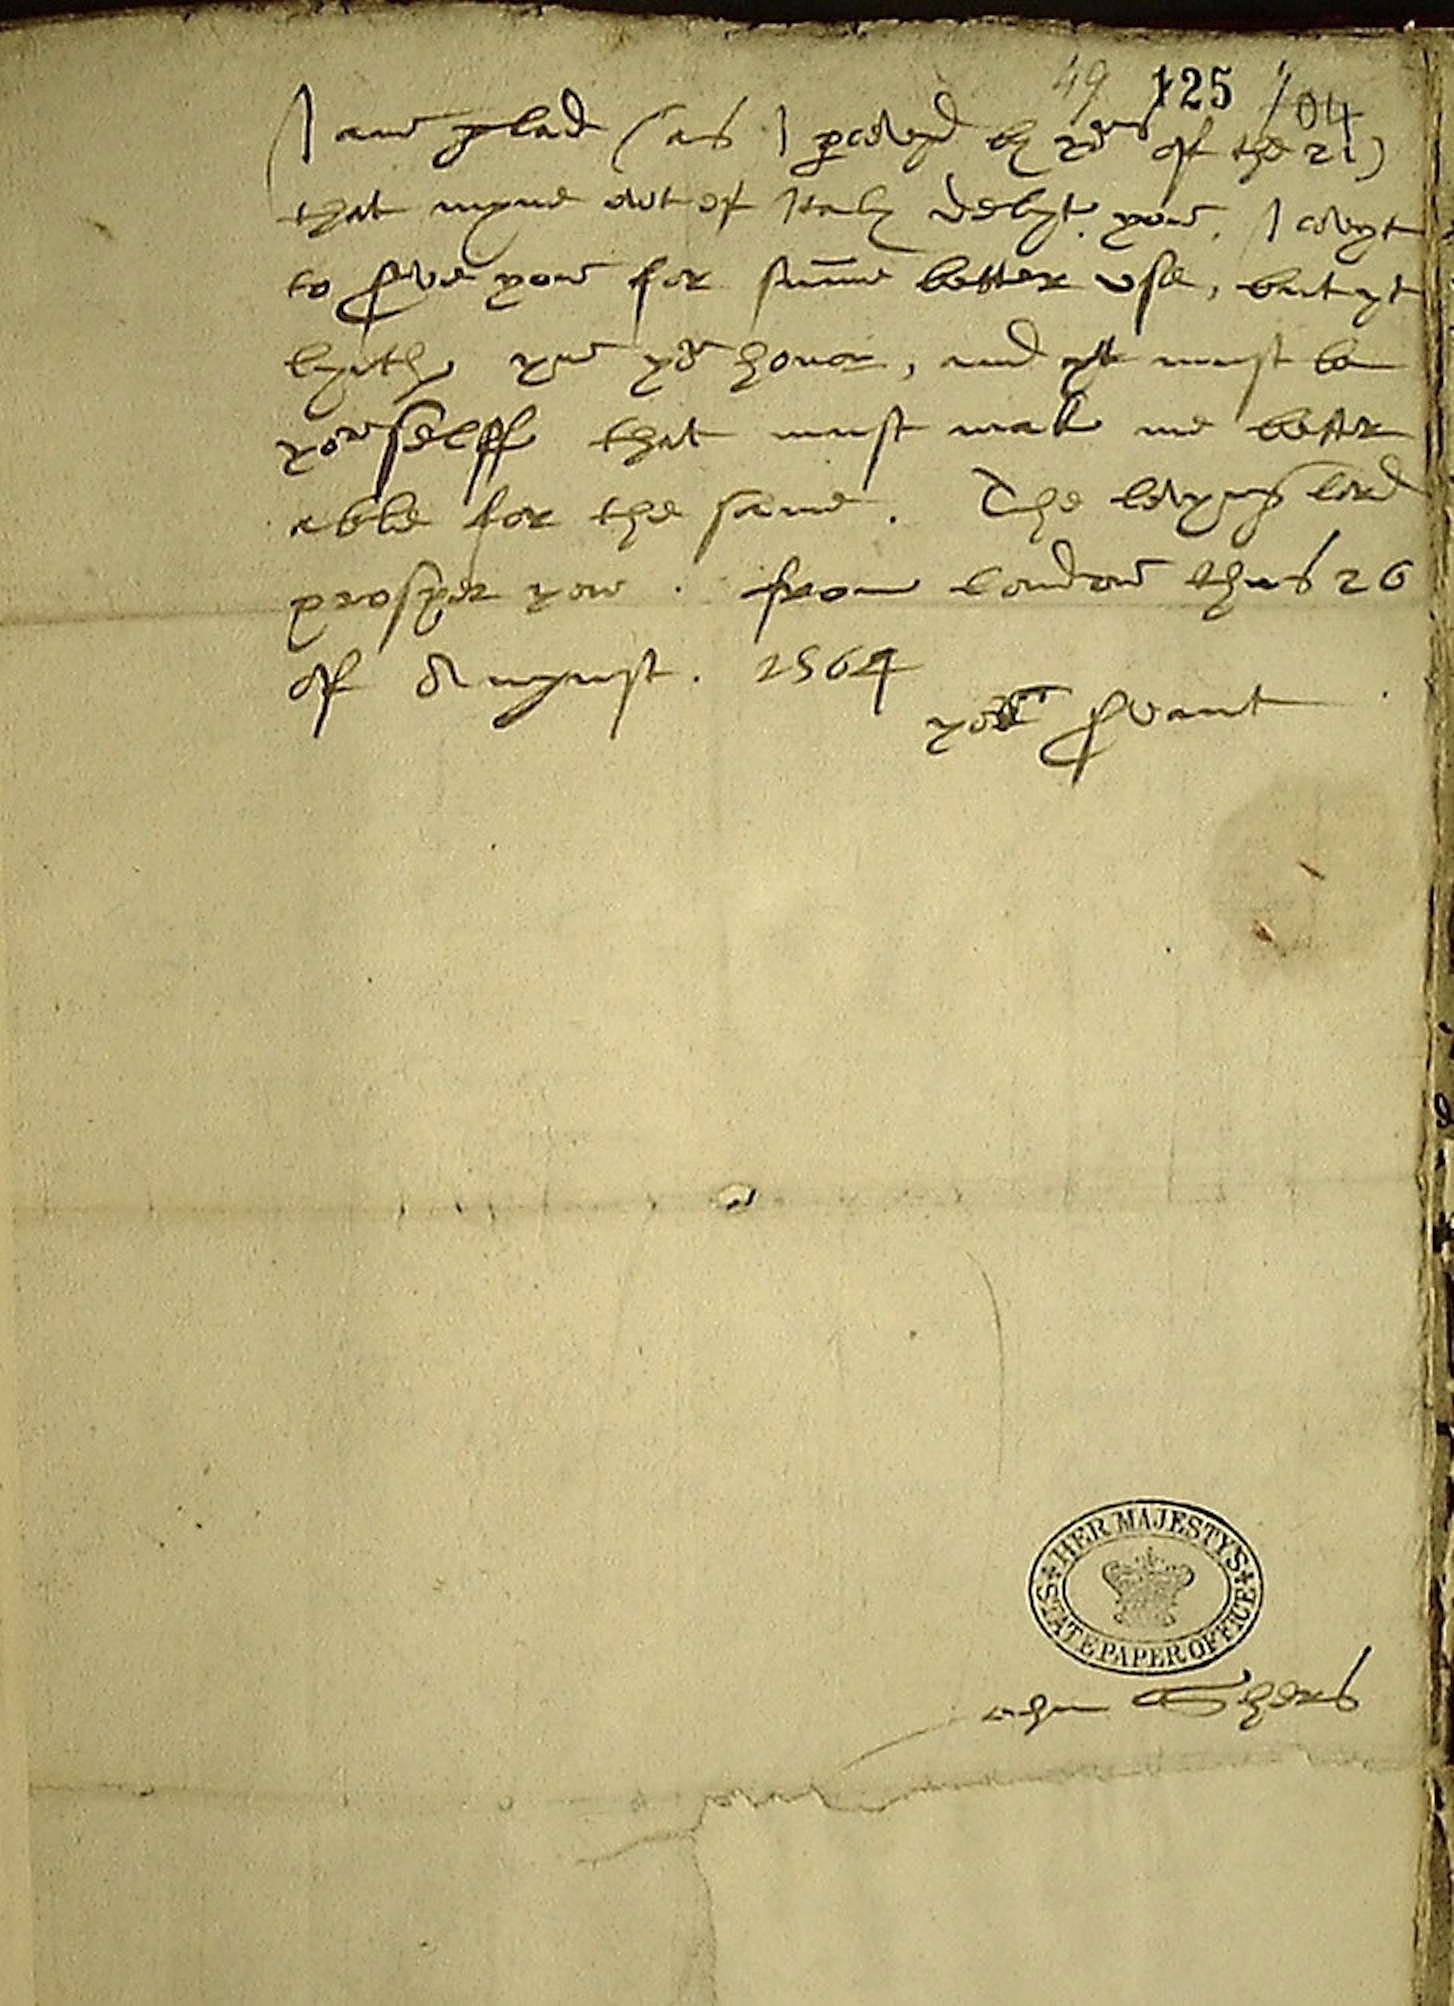 49 125 104
I am glad (as I p̲ceved by yors of the 21)
that myne out of Italy delyt. you. I covyt
to s̲ve you for summe better use, but yt
lyeth yn yor honor, and yt must be
yowrselff that must mak me better
able for the same. The levyng lord
prosper yow. from london this 26
of August. 1564
yor s̲vant
HER MAJESTY'S STATE PAPER OFFICE
John Shers